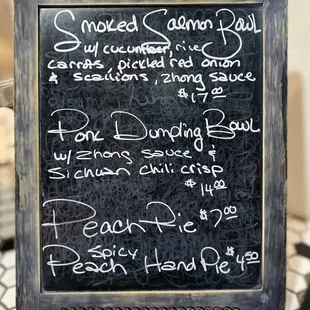 Smoked Salmon Bowl
w/ cucumber, rice,
carrots, pickled red onion
& scallions, zhong sauce
$17.00
Pork Dumpling Bowl
w/ zhong sauce &
Sichuan chili crisp
$14.00
Peach Pie $7.00
Spicy
Peach Hand Pie $4.50